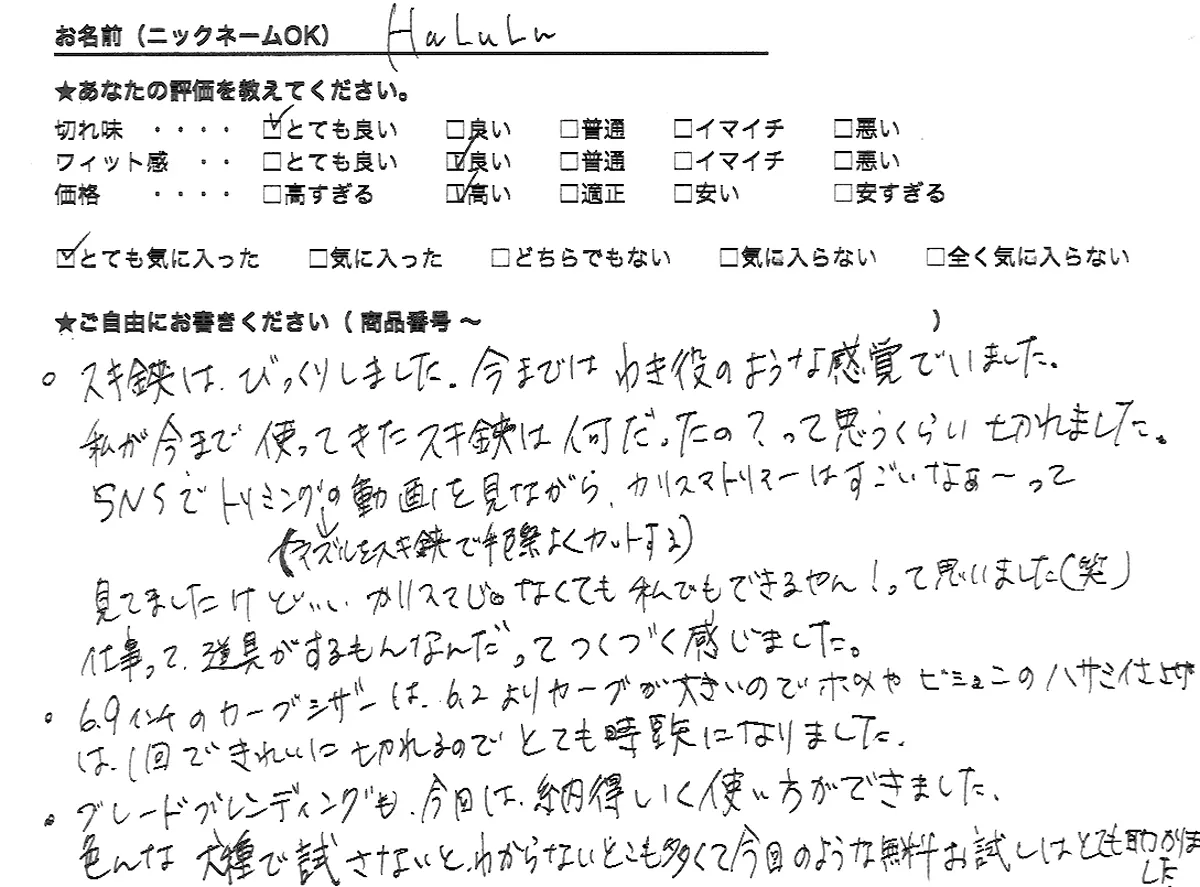 お名前（ニックネームOK） HaLuLu
★あなたの評価を教えてください。
切れ味 ・・・・ ☑とても良い □良い □普通 □イマイチ □悪い
フィット感 ・・ □とても良い ☑良い □普通 □イマイチ □悪い
価格 ・・・・ □高すぎる ☑高い □適正 □安い □安すぎる
☑とても気に入った □気に入った □どちらでもない □気に入らない □全く気に入らない
★ご自由にお書きください（商品番号 ～ ）
○ スキ鋏は、びっくりしました。今までは わき役のような感覚でいました。
私が今まで使ってきたスキ鋏は何だったの？って思うくらい切れました。
SNSでトリミングの動画を見ながら、カリスマトリマーはすごいなぁ～って
↓
(マズルをスキ鋏で手際よくカットする)
見てましたけど… カリスマじゃなくても私でもできるやん！って思いました(笑)
仕事って、道具がするもんなんだってつくづく感じました。
○ 6.9インチのカーブシザーは、6.2よりカーブが大きいのでホホやビションのハサミ仕上げ
は、1回できれいに切れるのでとても時短になりました。
• ブレードブレンディングも、今回は、納得いく使い方ができました、
色んな犬種で試さないと、わからないとこも多くて今回のような無料お試しはとても助かりま
した